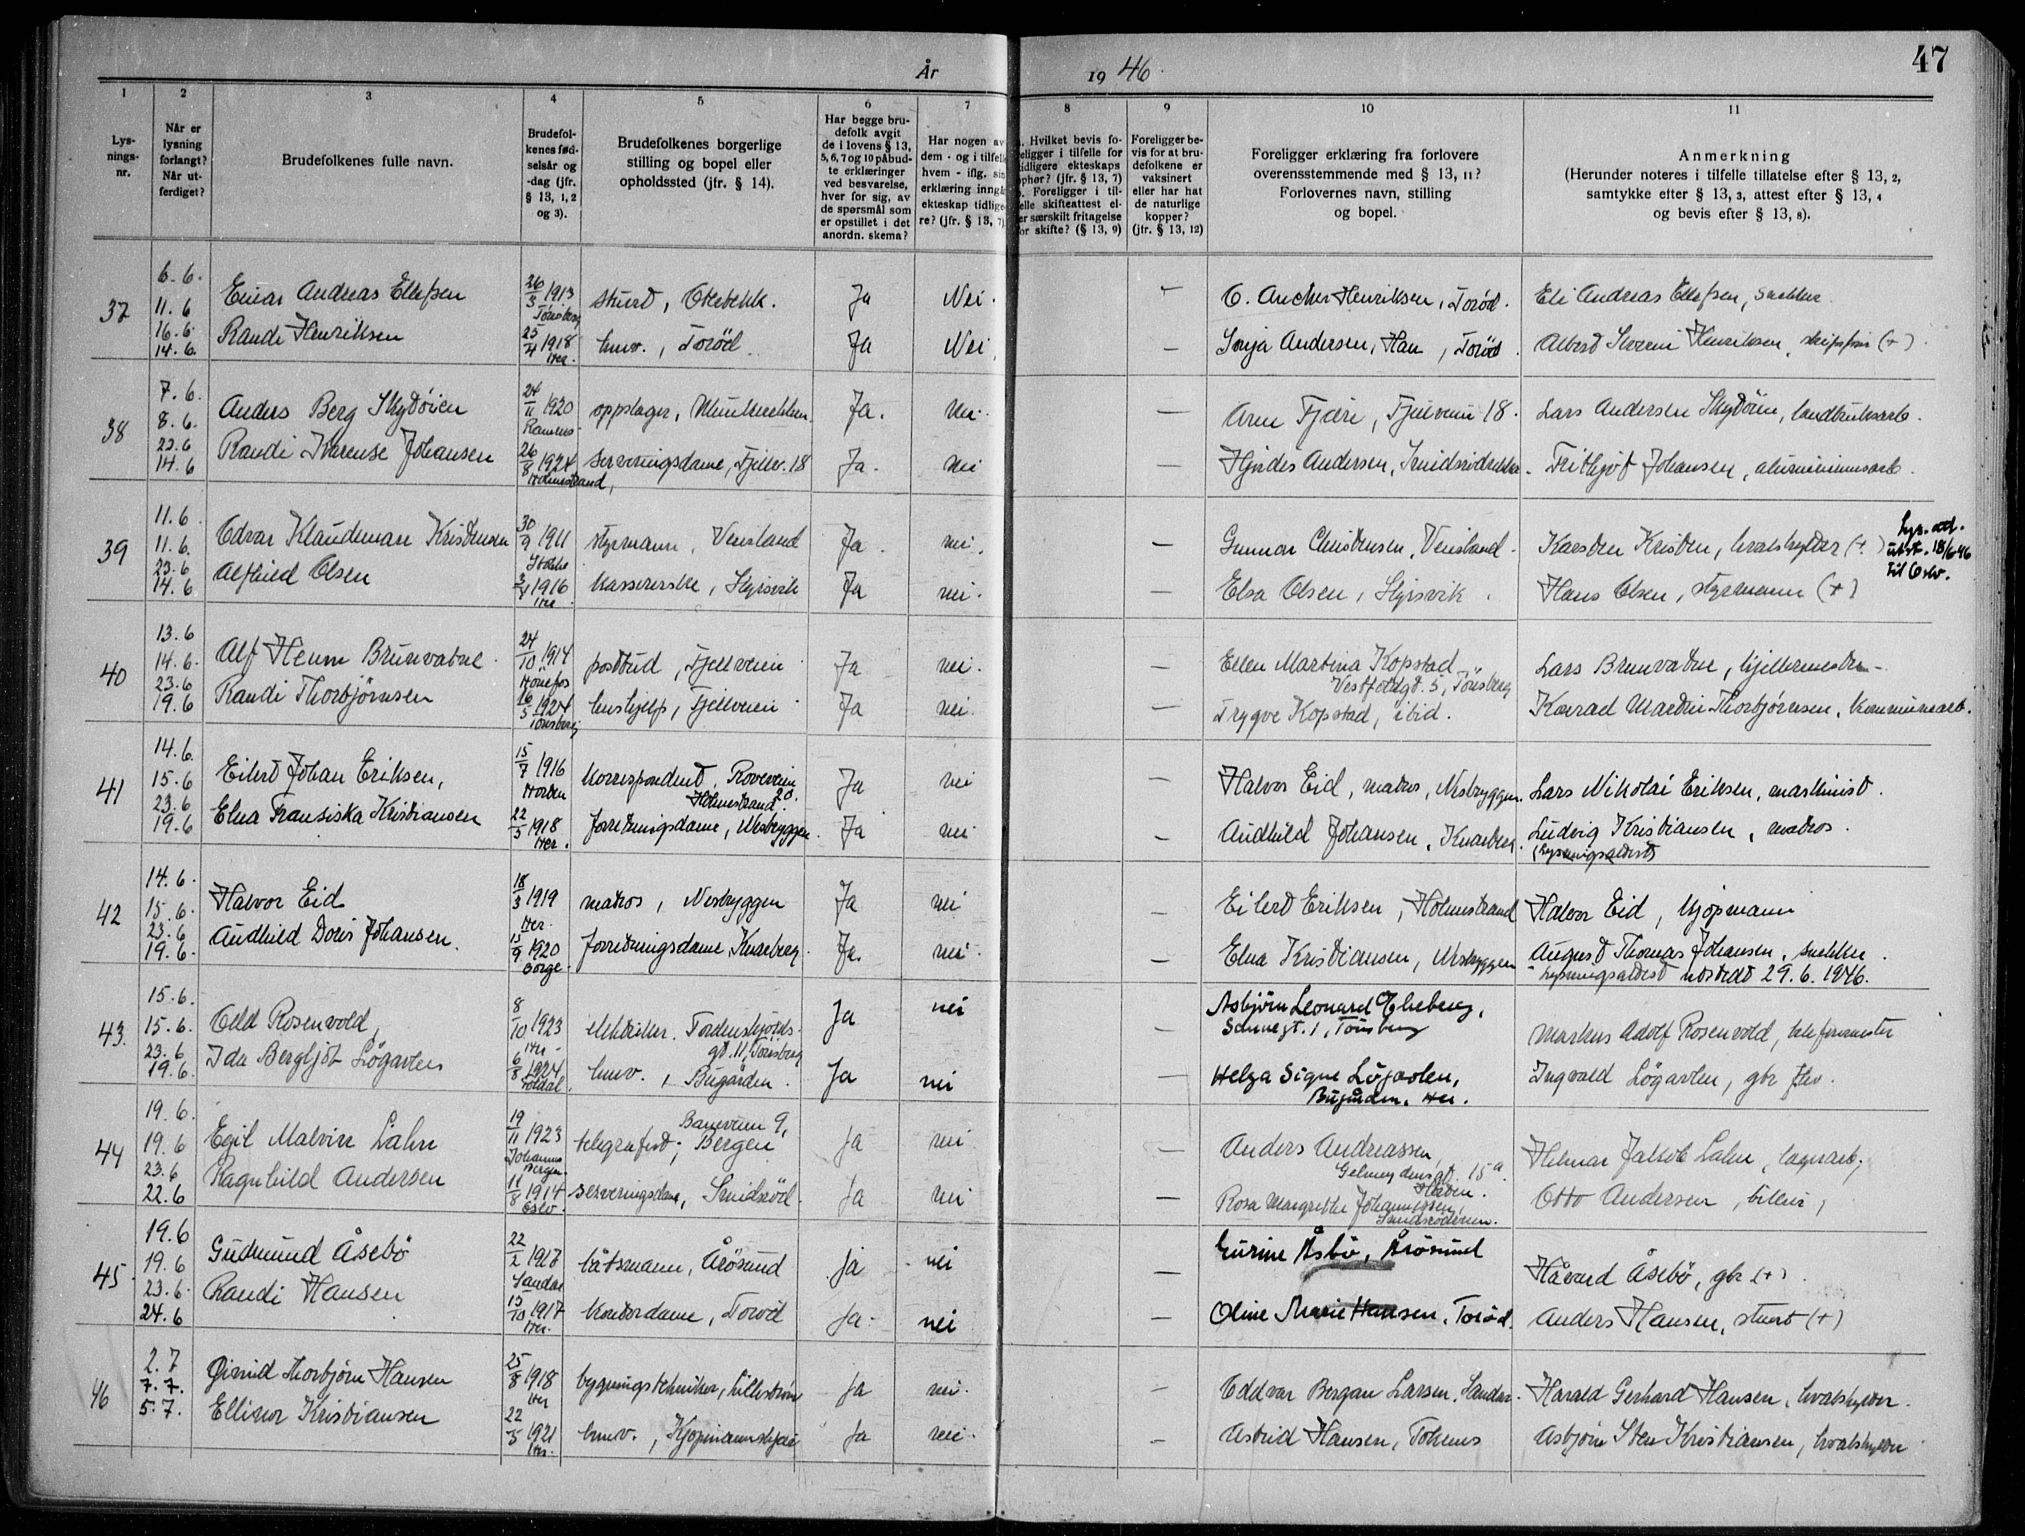 År 1946.
47
1 2 3 4 5 6 7 8 9 10 11
Lysnings-nr.
Når er lysning forlangt? Når utferdiget?
Brudefolkenes fulle navn.
Brudefolkenes fødselsår og -dag (jfr. § 13, 1, 2 og 3).
Brudefolkenes borgerlige stilling og bopel eller opholdssted (jfr. § 14).
Har begge brudefolk avgit de i lovens § 13, 5, 6, 7 og 10 påbudte erklæringer ved besvarelse, hver for sig, av de spørsmål som er opstillet i det anordn. skema?
Har nogen av dem - og i tilfelle hvem - iflg. sin erklæring inngått ekteskap tidligere? (jfr. § 13, 7)
Hvilket bevis foreligger i tilfelle for tidligere ekteskaps ophør? (jfr. § 13, 7) Foreligger i tilfelle skifteattest eller særskilt fritagelse for skifte? (§ 13, 9)
Foreligger bevis for at brudefolkene er vaksinert eller har hat de naturlige kopper? (jfr. § 13, 12)
Foreligger erklæring fra forlovere overensstemmende med § 13, 11? Forlovernes navn, stilling og bopel.
Anmerkning (Herunder noteres i tilfelle tillatelse efter § 13, 2, samtykke efter § 13, 3, attest efter § 13, 4 og bevis efter § 13, 8).
37
6.6. 11.6 16.6 14.6.
Einar Andreas Ellefsen 26/3 1913 Tønsberg stuert, Ekebekk. Ja Nei. — O. Ancher Henriksen, Torød. Eli Andreas Ellefsen, snekker
Randi Henriksen 25/4 1918 Her. husv., Torød Ja Nei. — Sonja Andersen, Hau, Torød. Albert Severin Henriksen, skipsfører (+)
38
7.6. 8.6. 23.6 14.6
Anders Berg Skydøien 24/11 1920 Ramnes oppslager, Munkerekken Ja. nei. — Arne Fjære, Fjellveien 18. Lars Andersen Skydøien, landbruksarb.
Randi Karense Johansen 26/8 1924 Holmestrand, serveringsdame, Fjellv. 18 Ja. nei — Hjørdis Andersen, Smidsrødrekka. Frithjof Johansen, aluminiumsarb.
39
11.6. 11.6. 23.6 14.6
Edvar Klaudemare Kristensen 30/9 1911 Stokke styrmann, Veierland Ja. nei. — Gunnar Christensen, Veierland. Karsten Kristen, hvalskytter (+)
Lys. att. utst. 18/6-46 til Oslo.
Alfhild Olsen 3/4 1916 Her. kassererske, Skjersvik Ja nei. — Elsa Olsen, Skjersvik. Hans Olsen, styrmann (+)
40
13.6 14.6. 23.6 19.6
Alf Henm Brunvatne 24/10 1914 Hönefos postbud, Fjellveien Ja nei. — Ellen Martina Kopstad Vestfoldgt. 5, Tönsberg Lars Brunvatne, kjellermester.
Randi Thorbjørnsen 16/5 1924 Tönsberg hushjelp, Fjellveien Ja nei. — Trygve Kopstad, ibid. Konrad Martin Thorbjørnsen, kommunearb.
41
14.6. 15.6 23.6 19.6
Eilert Johan Eriksen, 15/7 1916 Horten korrespondent, Roveveien 20. Holmestrand Ja nei — Halvor Eid, matros, Nesbryggen. Lars Nikolai Eriksen, maskinist.
Elna Fransiska Kristiansen 22/5 1918 Her. forretningsdame, Nesbryggen. Ja nei — Audhild Johansen, Knarberg. Ludvig Kristiansen, matros.
(lysningsattest)
42
14.6. 15.6. 23.6 19.6.
Halvor Eid 18/3 1919 Her. matros, Nesbryggen Ja nei — Eilert Eriksen, Holmestrand Halvor Eid, kjøpmann
Audhild Doris Johansen. 15/9 1920 Borge. forretningsdame, Knarberg Ja. nei. — Elna Kristiansen, Nesbryggen August Thomas Johansen, snekker.
Lysningsattest utstedt 29.6.1946.
43.
15.6. 15.6. 23.6 19.6.
Odd Rosenvold, 8/10 1923 Her. elektriker. Tordenskjolds-gt. 11, Tönsberg Ja nei — Asbjørn Leonard Ekeberg, Schnegt. 1, Tönsberg Markus Adolf Rosenvold, telefonmester
Ida Bergljot Løgavlen 6/8 1924 Foldal. husv., Bugården. Ja nei Helga Signe Løgavlen, Bugården, Her. Ingvald Løgavlen, gbr. flev.
44
19.6. 19.6 23.6 22.6
Egil Malvin Lahn 19/11 1923 Johannes Bergen telegrafist; Baneveien 9, Bergen Ja nei — Anders Andreassen, 15a Helmar Jakob Lahn, lagerarb,
Ragnhild Andersen 11/8 1914 Oslo serveringsdame, Smidsrød. Ja nei — Rosa Margrethe Johannessen, Smidsrødveien. Otto Andersen,
45
19.6 19.6 23.6. 24.6
Gudmund Åsebö 22/2 1917 Sandar båtsmann, Årösund Ja nei — Gurine Åsbö, Årösund Håvard Åsebö, gbr (+)
Randi Hansen 15/10 1917 Her. kontordame, Torød Ja. nei — Oline Marie Hansen, Torød. Anders Hansen, stuert (+)
46
2.7 7.7. 5.7.
Øivind Thorbjørn Hansen 25/8 1918 Her bygningstekniker, Lillestrøm Ja nei. — Oddvar Bergan Larsen, Sandar. Harald Gerhard Hansen, hvalskytter.
Ellinor Kristiansen 22/5 1921 Her. husv., Kjøpmannskjær Ja nei. — Astrid Hansen, Tokenes Asbjørn Sten Kristiansen, hvalskytter